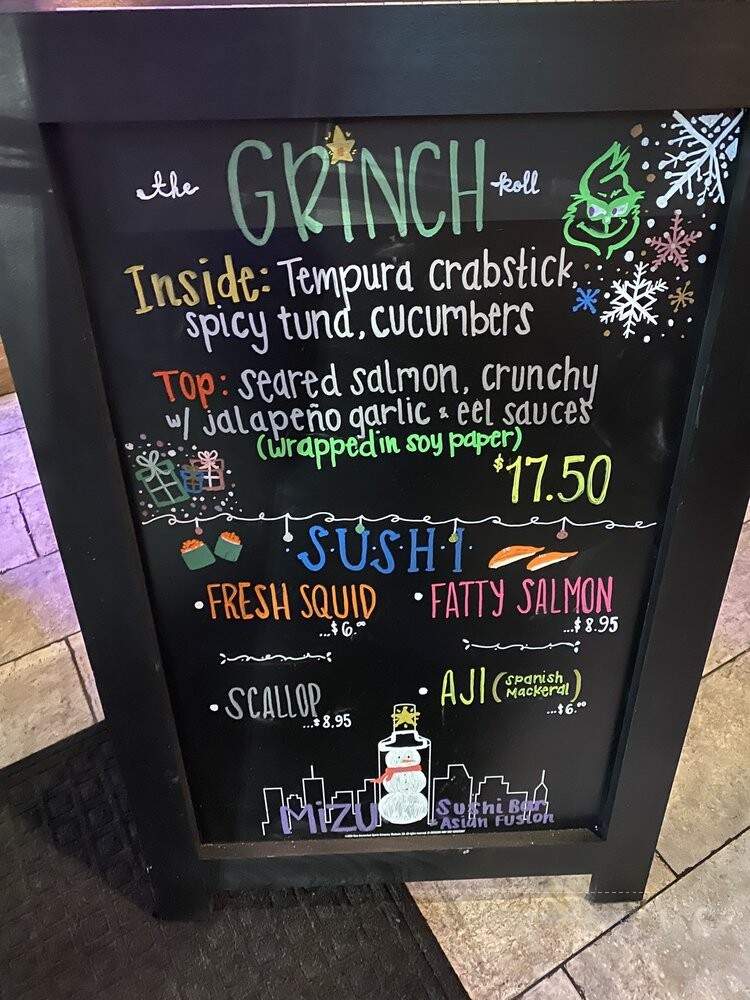 the GRINCH Roll
Inside: Tempura crabstick,
spicy tuna, cucumbers
Top: seared salmon, crunchy
w/ jalapeño garlic & eel sauces
(wrapped in soy paper)
$17.50
S·U·S·H·I
• FRESH SQUID
...$6.00
• FATTY SALMON
...$8.95
• SCALLOP
...$8.95
• AJI (Spanish
Mackeral)
...$6.00
MIZU
Sushi Bar
& Asian Fusion